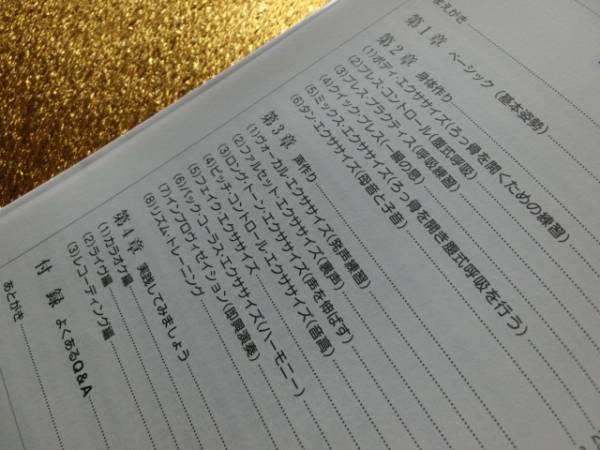 まえがき
第1章 ベーシック（基本姿勢）
第2章 身体作り
(1)ボディ・エクササイズ（ろっ骨を開くための練習）
(2)ブレス・コントロール（腹式呼吸）
(3)ブレス・プラクティス（呼吸練習）
(4)クイック・ブレス（一瞬の息）
(5)ミックス・エクササイズ（ろっ骨を開き腹式呼吸を行う）
(6)タン・エクササイズ（母音と子音）
第3章 声作り
(1)ヴォーカル・エクササイズ（発声練習）
(2)ファルセット・エクササイズ（裏声）
(3)ロング・トーン・エクササイズ（声を伸ばす）
(4)ピッチ・コントロール・エクササイズ（音高）
(5)フェイク・エクササイズ
(6)バック・コーラス・エクササイズ（ハーモニー）
(7)インプロヴィゼイション（即興演奏）
(8)リズム・トレーニング
第4章 実践してみましょう
(1)カラオケ編
(2)ライヴ編
(3)レコーディング編
付録 よくあるQ&A
あとがき